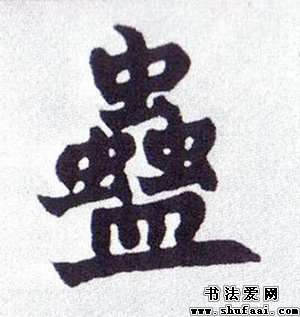 蠱
书法爱网
www.shufaai.com